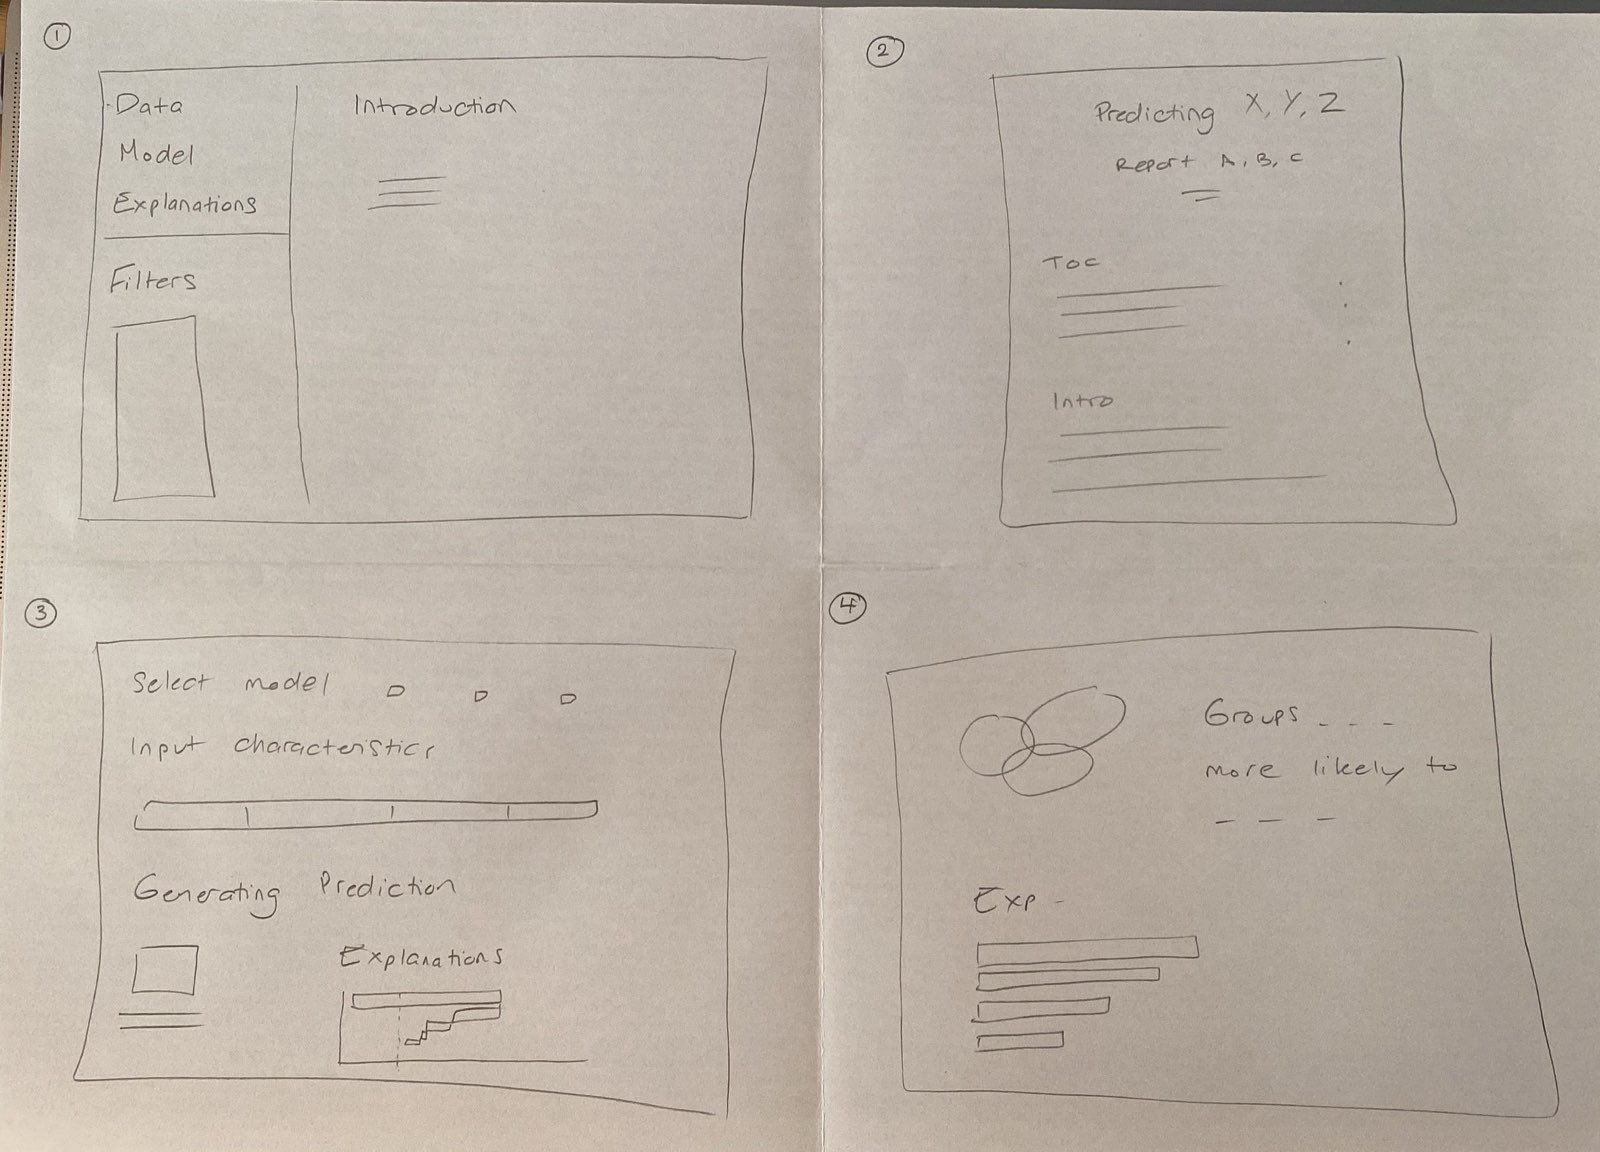 1
Data
Model
Explanations
Filters
Introduction
2
Predicting X, Y, Z
Report A, B, C
TOC
Intro
3
Select model
Input characteristics
Generating Prediction
Explanations
4
Groups - - -
more likely to
- - -
Exp -